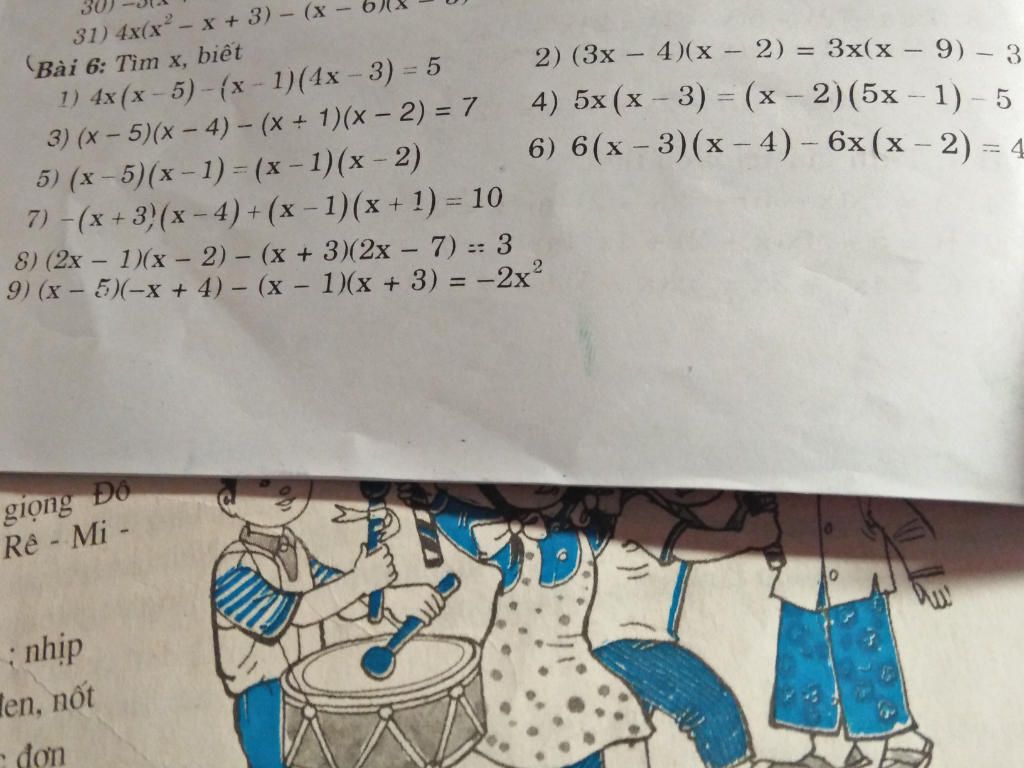 30) –
31) 4x(x² – x + 3) – (x – 6)(x –
Bài 6: Tìm x, biết
1) 4x(x – 5) – (x – 1)(4x – 3) = 5
2) (3x – 4)(x – 2) = 3x(x – 9) – 3
3) (x – 5)(x – 4) – (x + 1)(x – 2) = 7
4) 5x(x – 3) = (x – 2)(5x – 1) – 5
5) (x – 5)(x – 1) = (x – 1)(x – 2)
6) 6(x – 3)(x – 4) – 6x(x – 2) = 4
7) –(x + 3)(x – 4) + (x – 1)(x + 1) = 10
8) (2x – 1)(x – 2) – (x + 3)(2x – 7) = 3
9) (x – 5)(–x + 4) – (x – 1)(x + 3) = –2x²
giọng Đô
Rê - Mi -
: nhịp
đen, nốt
đơn